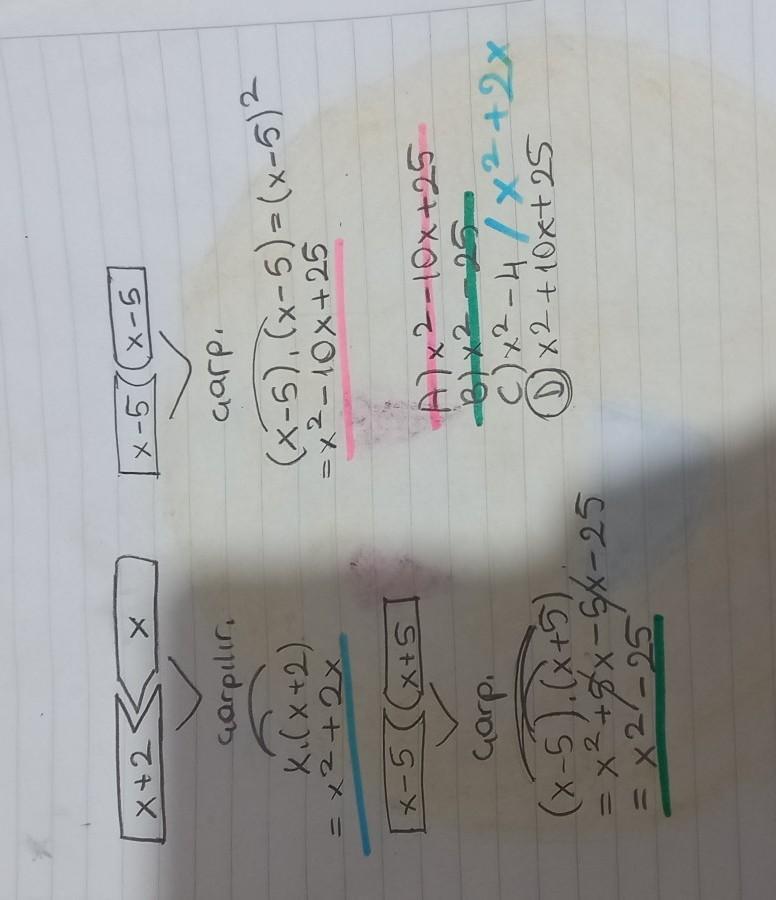 x+2 x
çarpılır.
x.(x+2)
= x²+2x
x-5 x+5
çarp.
(x-5).(x+5)
= x²+5x-5x-25
= x²-25
x-5 x-5
çarp.
(x-5).(x-5)=(x-5)²
= x²-10x+25
A) x²-10x+25
B) x²-25
C) x²-4 / x²+2x
D) x²+10x+25